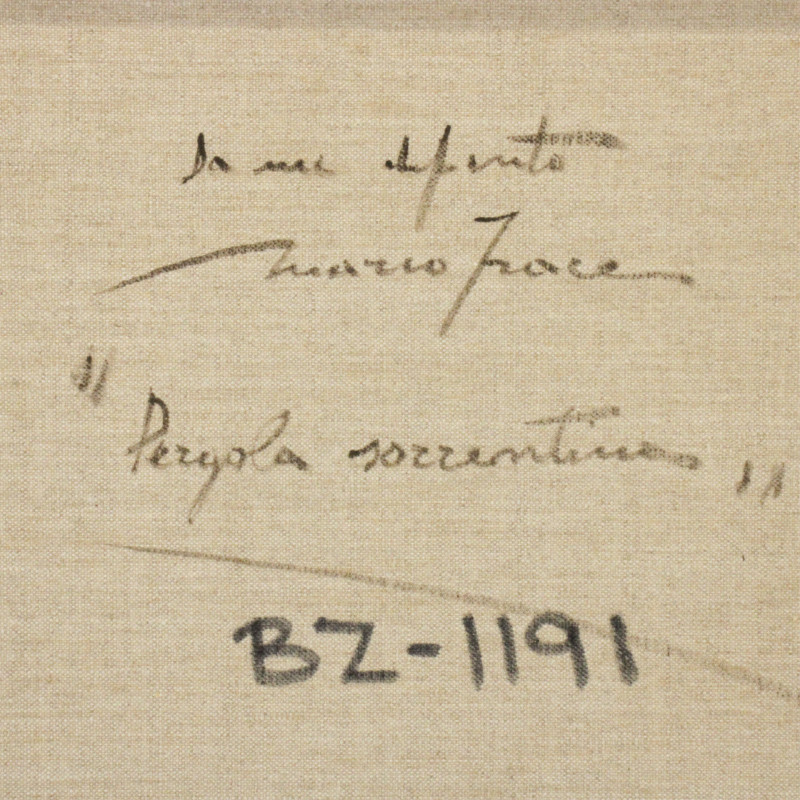 Da me dipinto
Mario Irace
"Pergola sorrentina"
BZ-1191